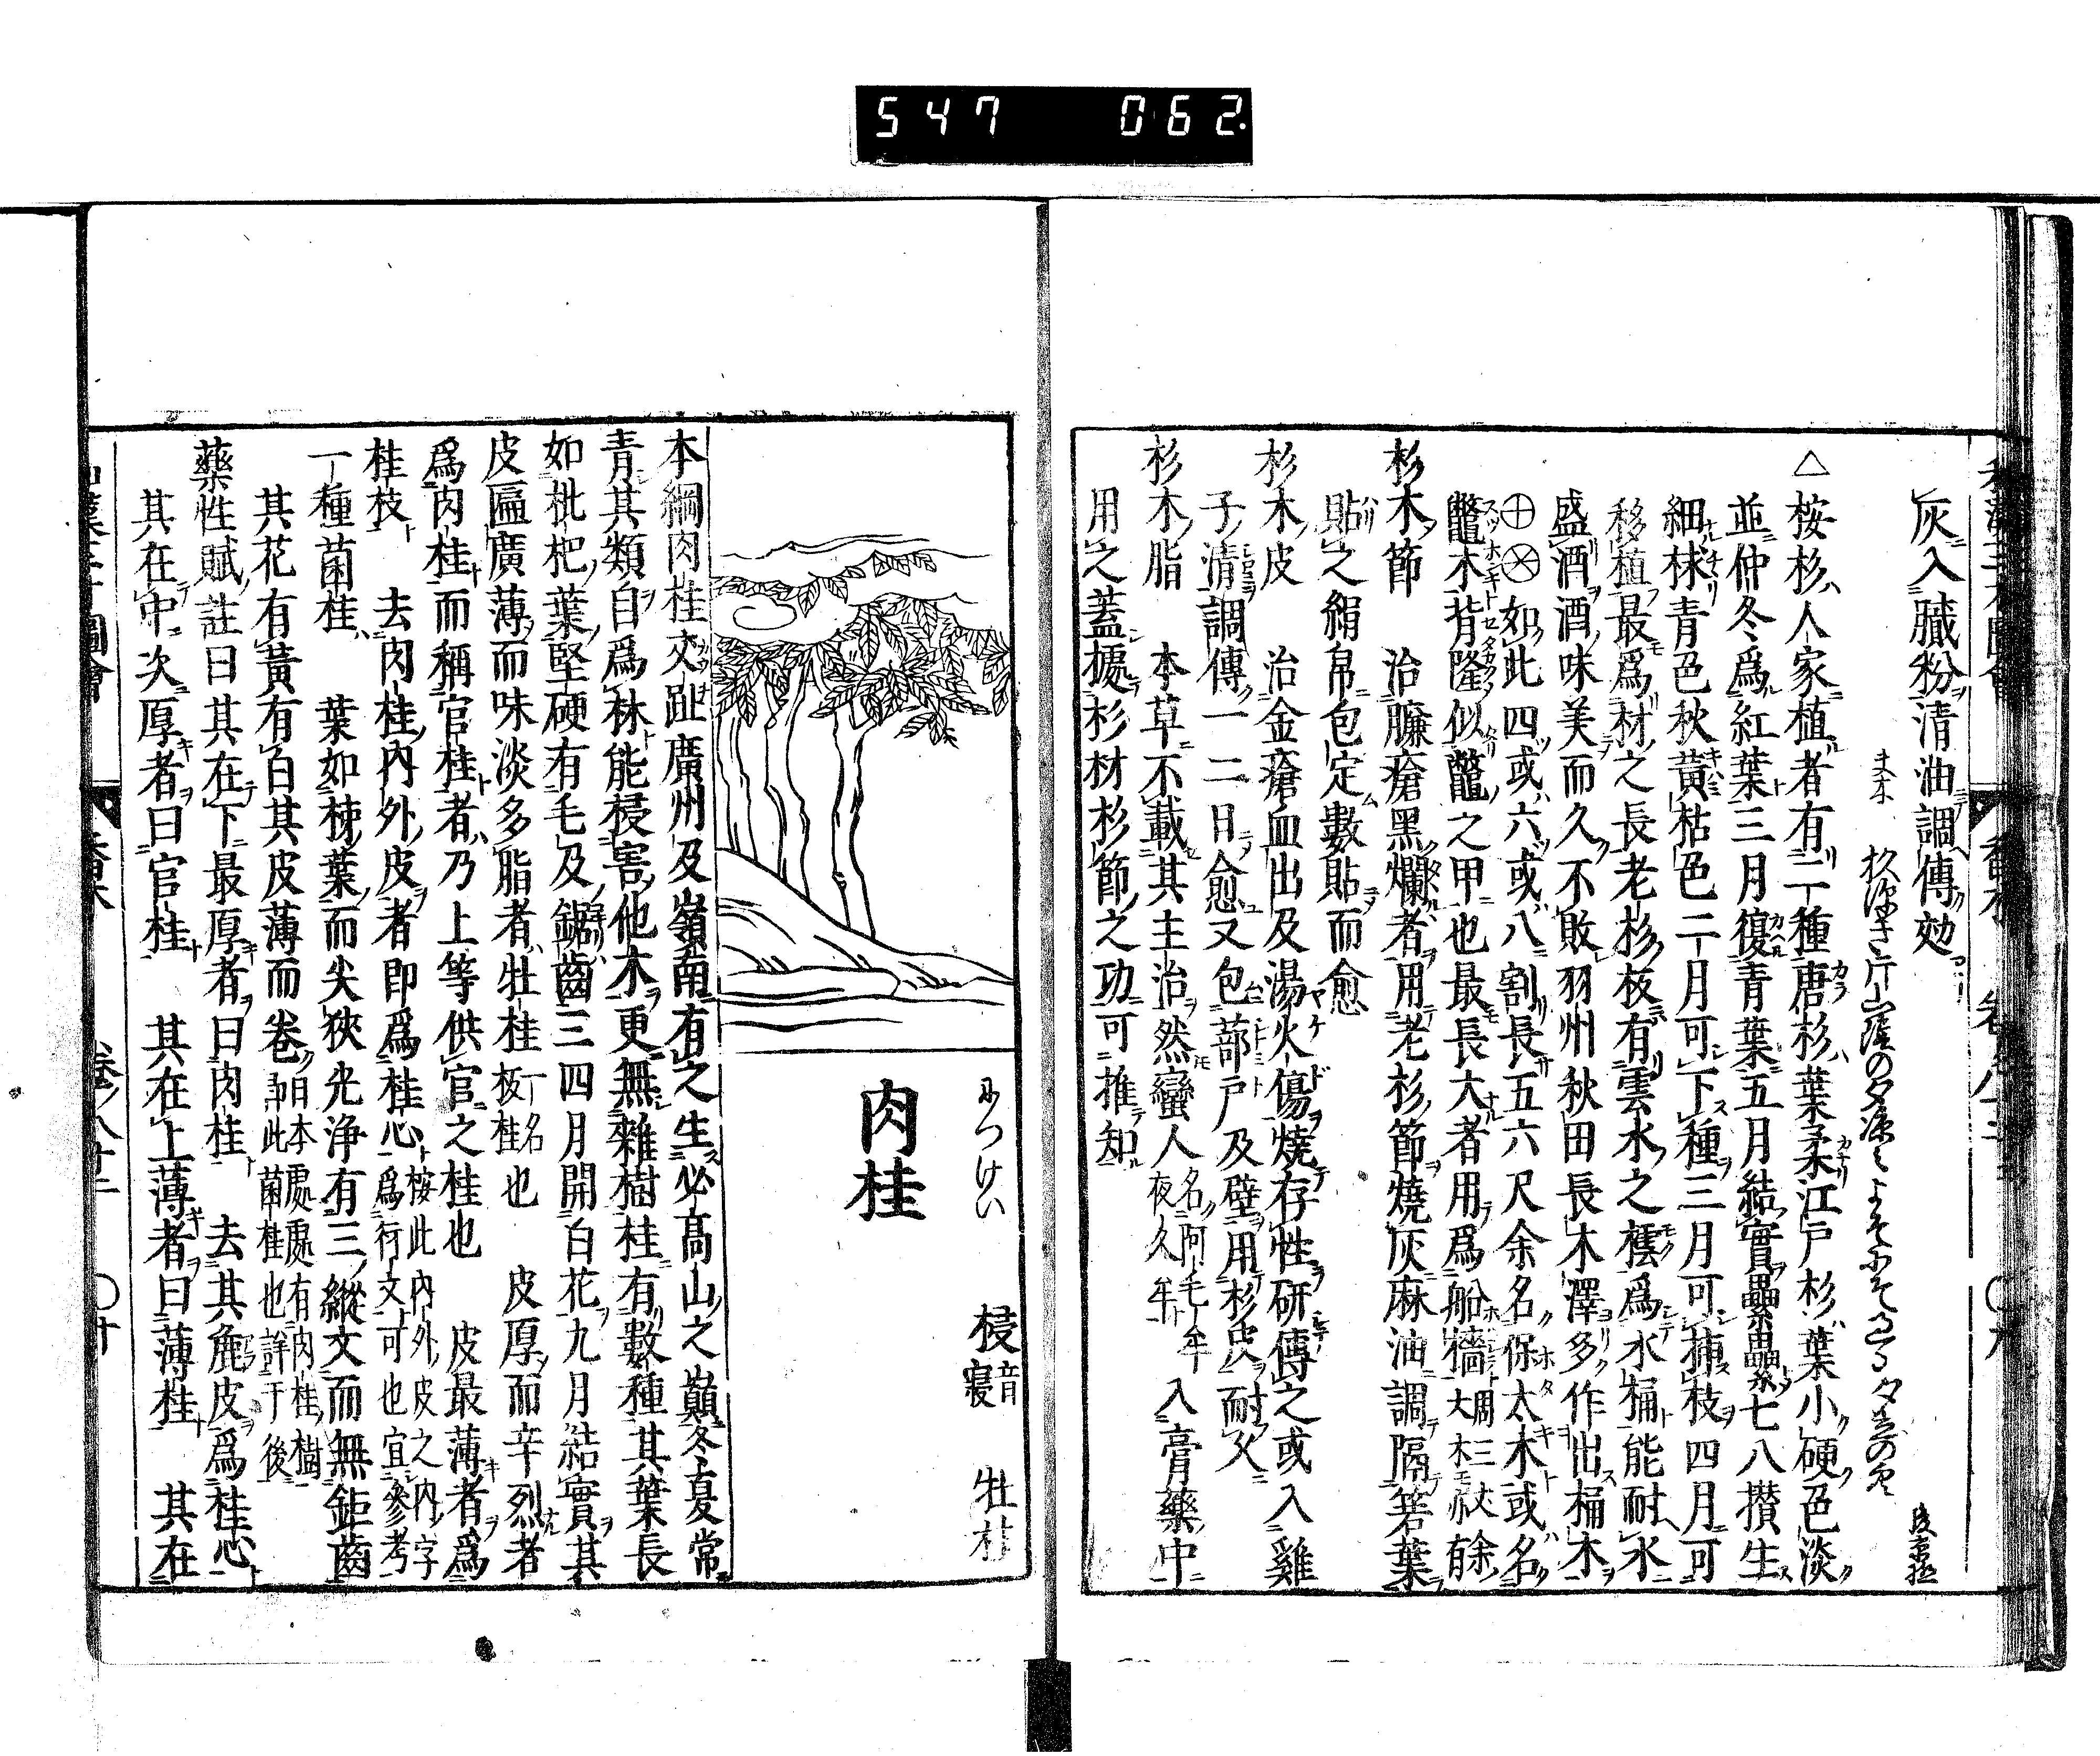 547 062
灰入膩粉清油調傅効
夫木 杦深き片山陰の夕
△ 桉杉人家植者有二種唐杉葉柔江戸杉葉小硬色淡
並仲冬爲紅葉三月復青葉五月結實纍纍七八攅生
細棘青色秋黃枯色二月可下種三月可揷枝四月可
移植最爲材之長老杉板有雲水之橒爲水桶能耐水
盛酒酒味美而久不敗羽州秋田長木澤多作出桶木
如此四或六或八割長五六尺余名保太木或名
鼈木背隆似鼈之甲也最長大者用爲船檣大周三丈余木モ亦有
杉木節 治臁瘡黑爛者用老杉節燒灰麻油調隔箬葉
貼之絹帛包定數貼而愈
杉木皮 治金瘡血出及湯火傷燒存性研傅之或入雞
子清調傅一二日愈又包蔀戸及壁用杉皮耐久
杉木脂 本草不載其主治然蠻人名阿毛牟夜久牟 入膏藥中
用之蓋據杉材杉節之功可推知
肉桂
につけい
梫音寑 牡桂
本綱肉桂交趾廣州及嶺南有之生必髙山之巓冬夏常
青其類自爲林能梫害他木更無雜樹桂有數種其葉長
如枇杷葉堅硬有毛及鋸齒三四月開白花九月結實其
皮匾廣薄而味淡多脂者牡桂一名板桂也 皮厚而辛烈者
爲肉桂而稱官桂者乃上等供官之桂也 皮最薄者爲
桂枝 去肉桂內外皮者即爲桂心桉此內外皮之內字爲衍文可也宜參考
一種菌桂 葉如柹葉而尖狹光浄有三縱文而無鉅齒
其花有黃有白其皮薄而卷今日本處處有肉桂樹即此菌桂也詳于後
藥性賦註曰其在下最厚者曰肉桂 去其麁皮爲桂心
其在中次厚者曰官桂 其在上薄者曰薄桂 其在